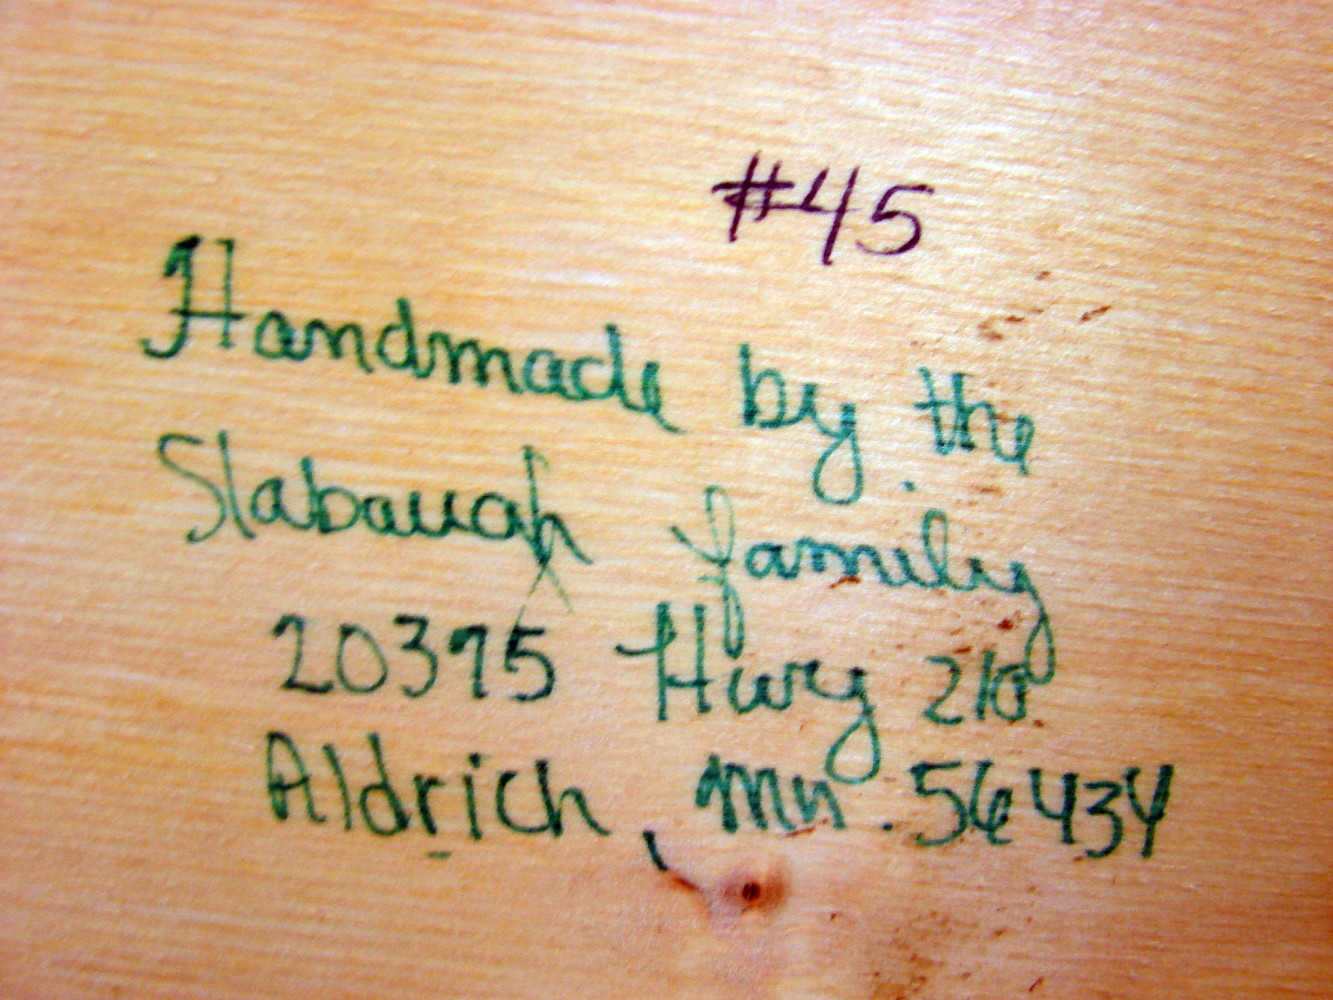 #45
Handmade by the
Slabaugh family
20395 Hwy 210
Aldrich, Mn. 56434